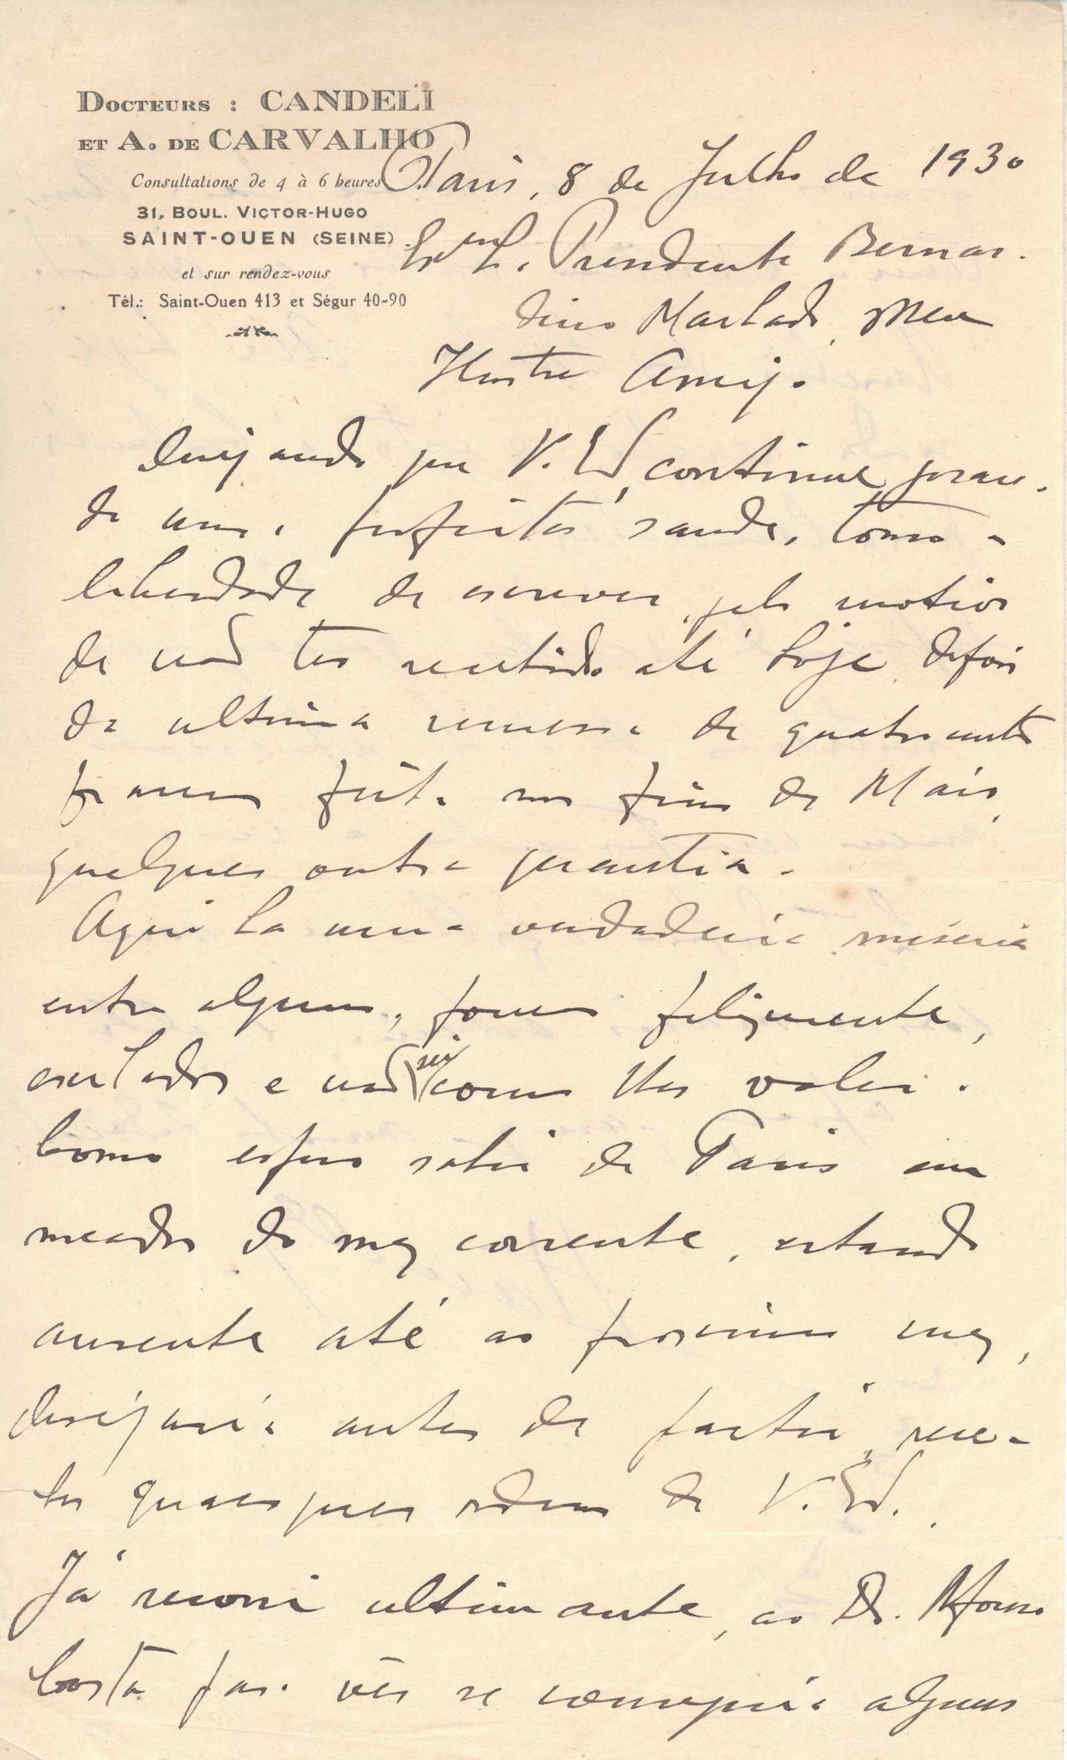 DOCTEURS : CANDELI
ET A. DE CARVALHO
Consultations de 4 à 6 heures
31, BOUL. VICTOR-HUGO
SAINT-OUEN (SEINE)
et sur rendez-vous
Tél.: Saint-Ouen 413 et Ségur 40-90
Paris, 8 de Julho de 1930
Presidente Bernar-
dino Machado, Meu
Ilustre Amigo.
Desejando que V. Exª continue gosan-
do uma perfeita saude, tomo a
liberdade de escrever, pelo motivo
de não ter recebido até hoje, depois
da ultima remessa de quatrocentos
francos feita nos fins de Maio,
qualquer outra quantia.
Aqui ha uma verdadeira miseria
entre alguns, poucos felizmente,
exilados e não sei como lhes valer.
Como espero sahir de Paris em
meados do mez corrente, estando
ausente até ao proximo mez,
desejaria antes de partir, rece-
ber quaesquer ordens de V. Exª.
Já recorri ultimamente, ao Dr. Afonso
Costa para vêr se conseguia alguns